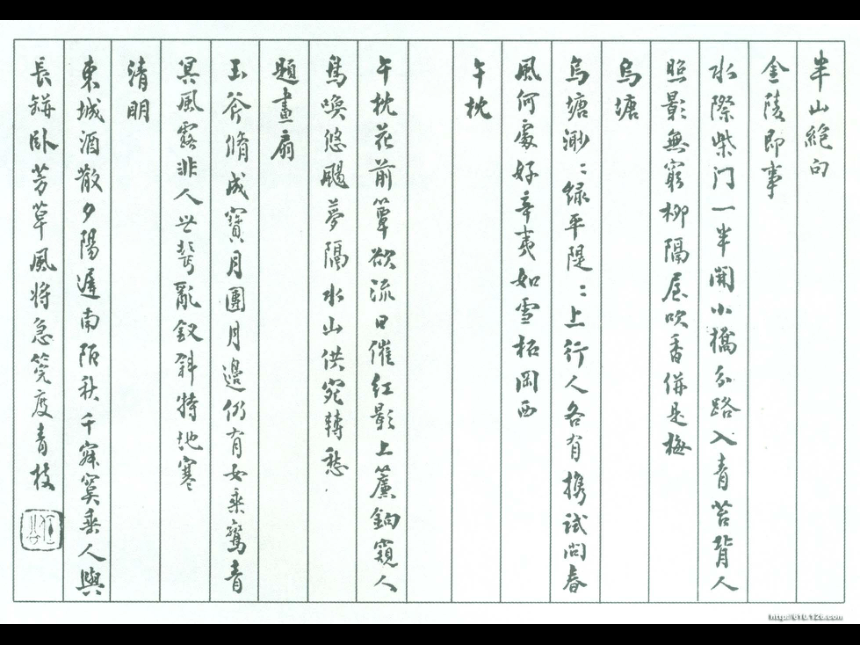 半山絕句
金陵即事
水際柴门一半開小橋分路入青苔背人
照影無窮柳隔屋吹香併是梅
烏塘
烏塘渺:綠平隄:上行人各有攜試問春
風何處好辛夷如雪柘岡西
午枕
午枕花前簟欲流日催紅影上簾鉤窺人
鳥喚悠颺夢隔水山供宛轉愁
題畫扇
玉斧脩成寶月團月邊仍有女乘鸞青
冥風露非人世鬢亂釵斜特地寒
清明
東城酒散夕陽遲南陌秋千寂寞垂人與
長缾卧芳草風將急筦度青枝